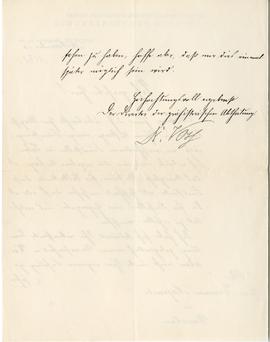 sehen zu haben, hoffe aber, daß mir dies einmal
später möglich sein wird.
Hochachtungsvoll ergebenst
Der Director der prähistorischen Abtheilung
A. Voß